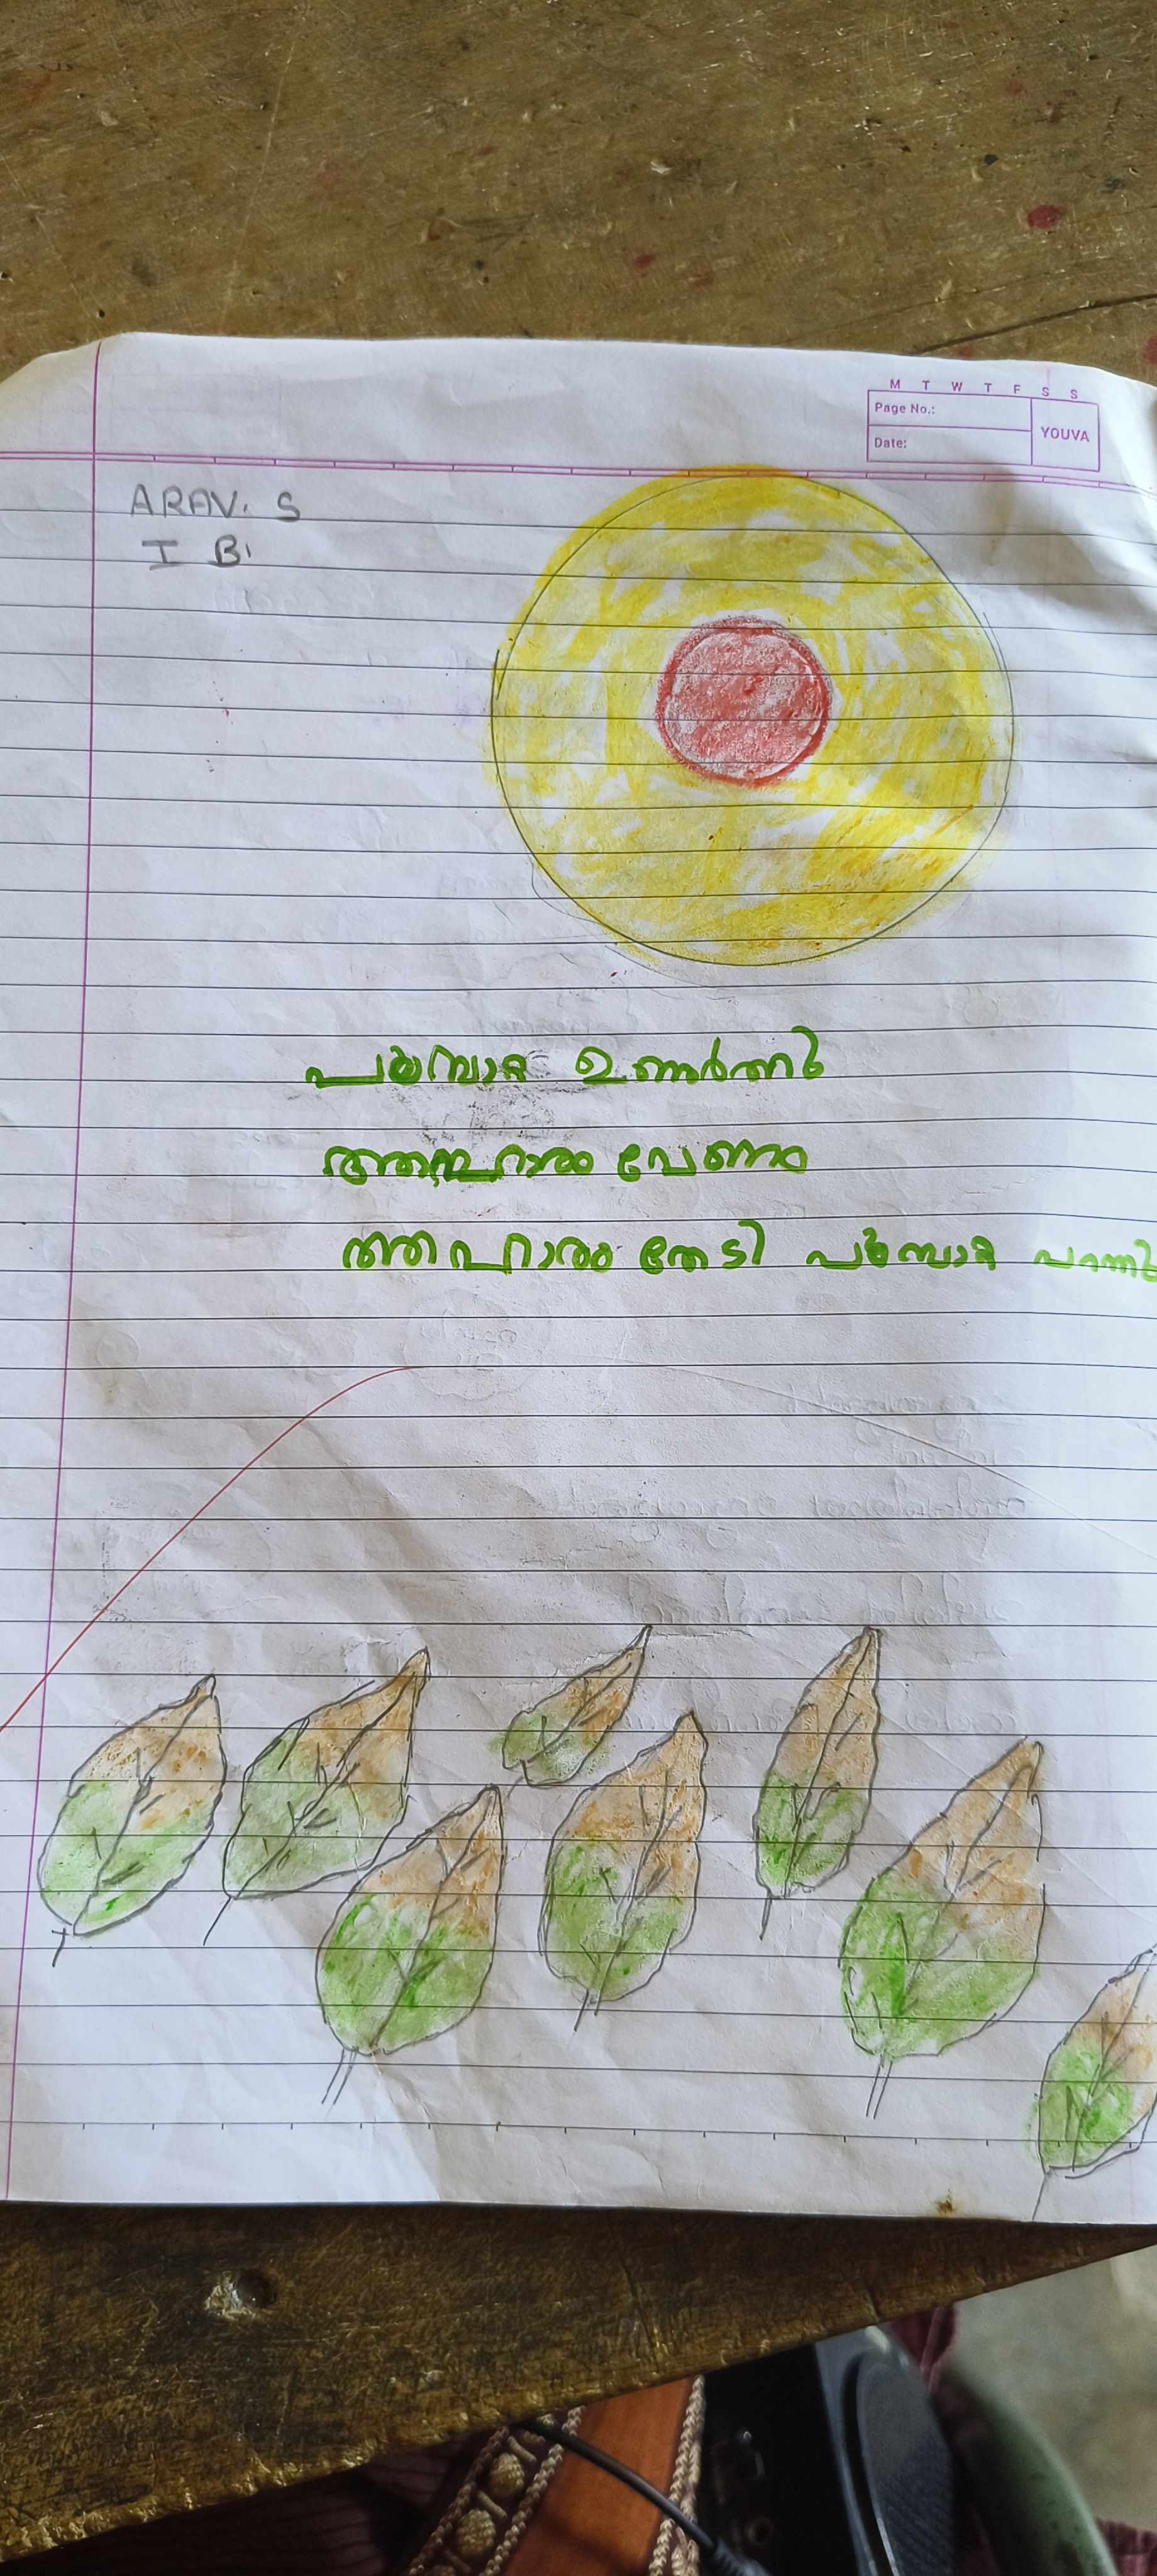 M T W T F S S
Page No.:
YOUVA
Date:
ARAV. S
I B
ഉണർന്നു
ആഹാരം വേണം
ആഹാരം തേടി പറന്നു